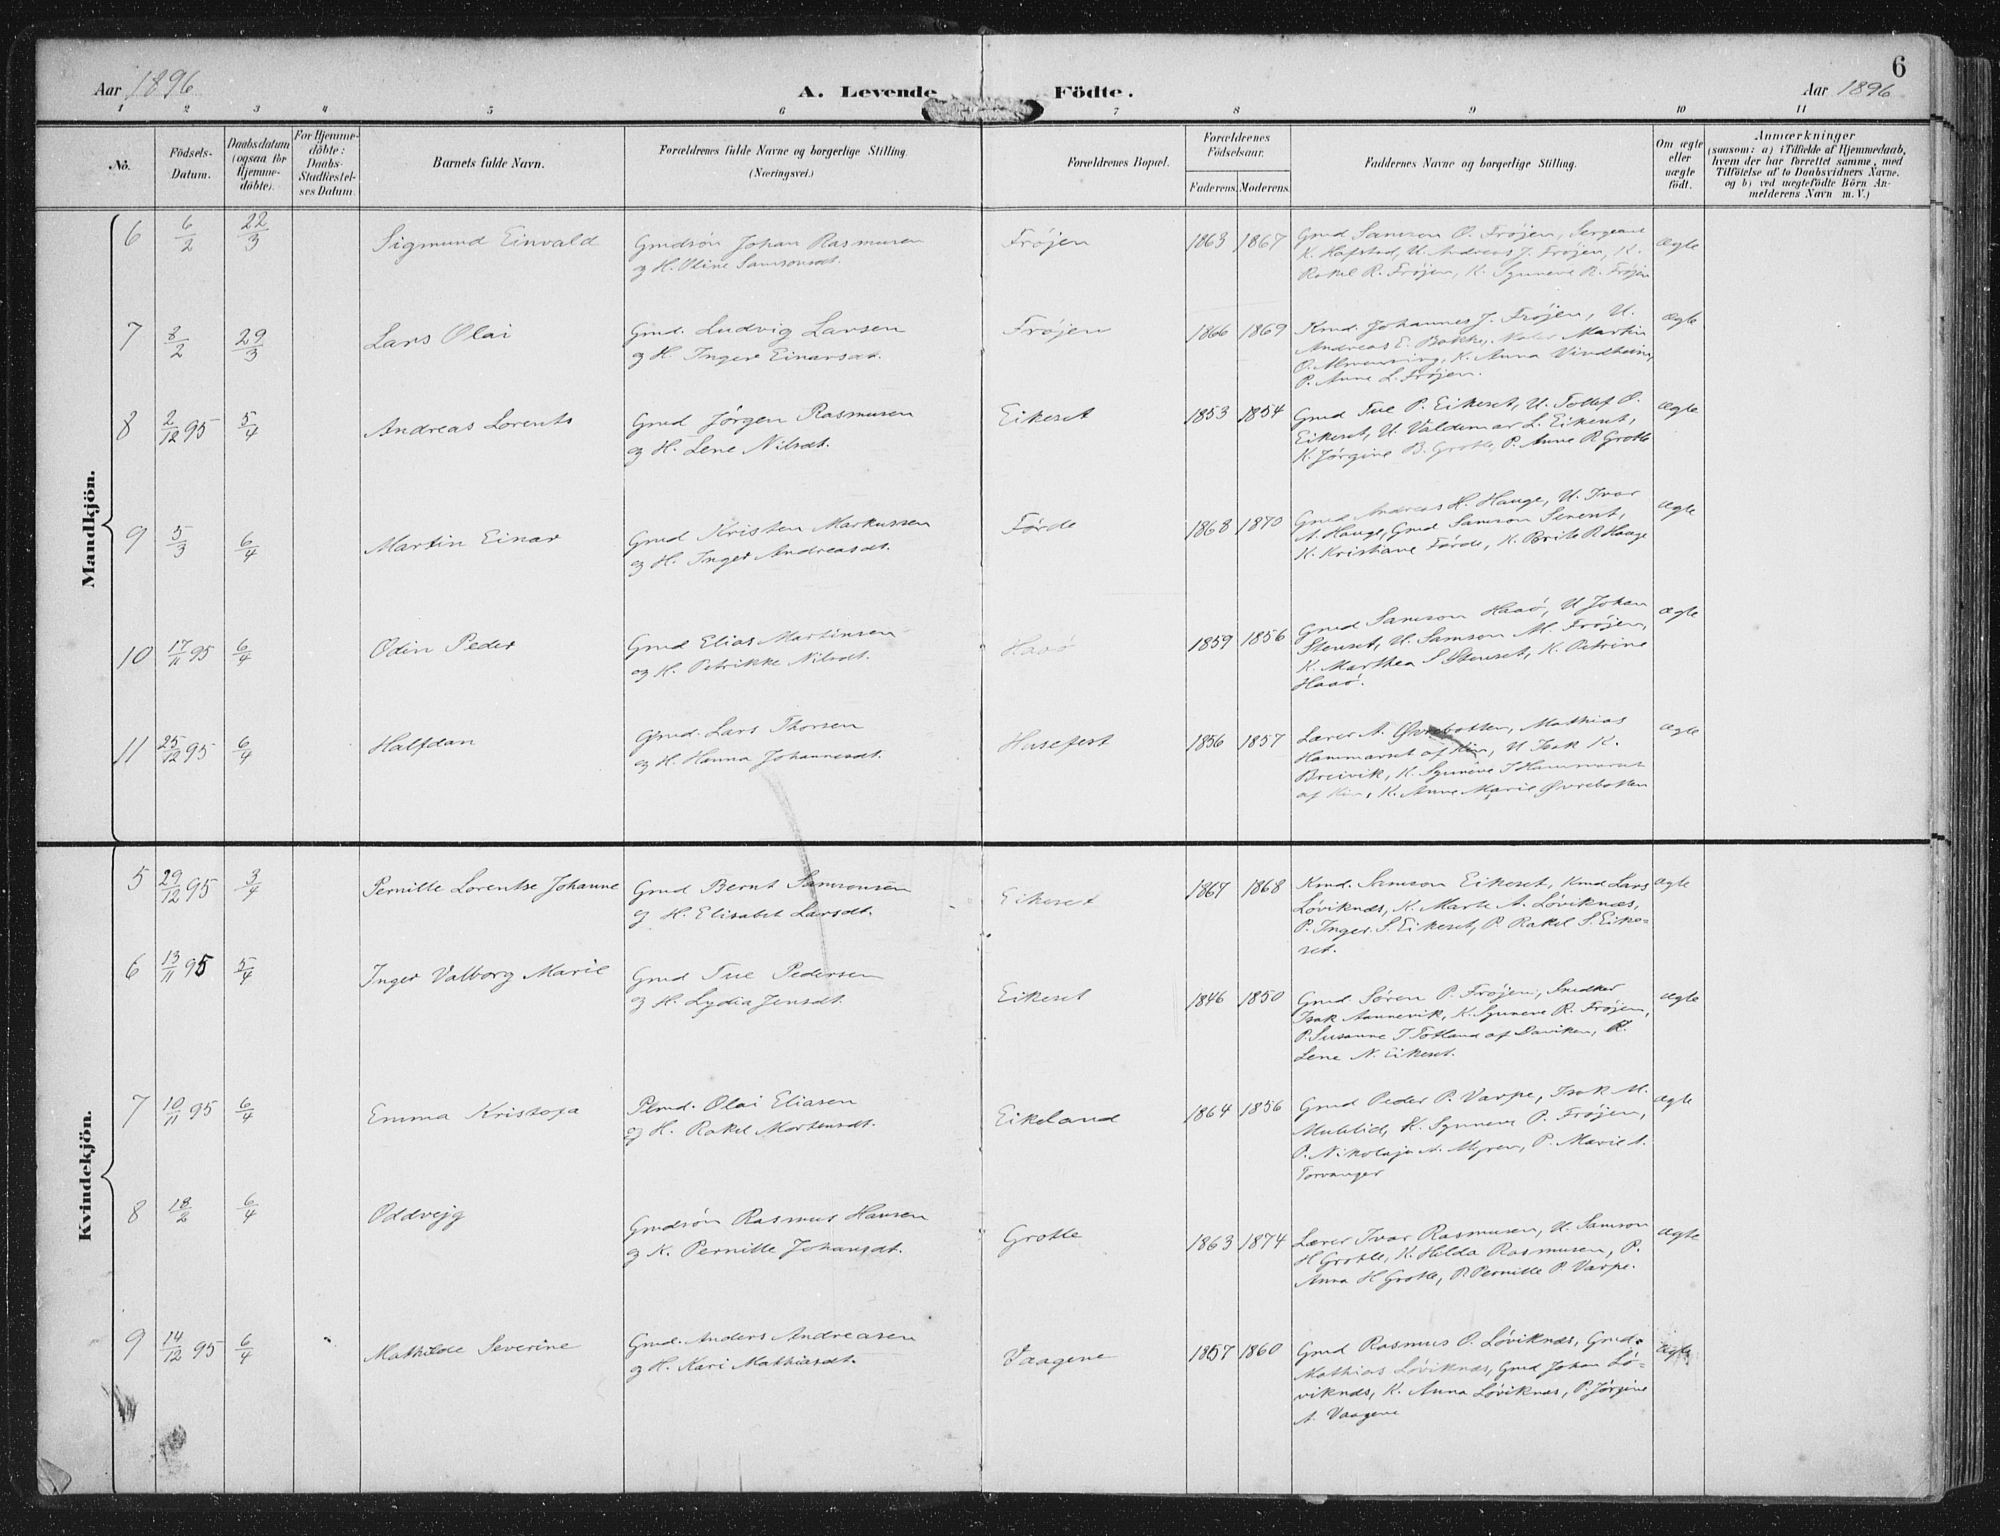 6
Aar 1896 A. Levende Födte. Aar 1896
1 2 3 4 5 6 7 8 9 10 11
No.
Födsels-
Datum.
Daabsdatum
(ogsaa för
Hjemme-
döbte).
For Hjemme-
döbte:
Daabs-
Stadfæstel-
ses Datum.
Barnets fulde Navn.
Forældrenes fulde Navne og borgerlige Stilling.
(Næringsvei.)
Forældrenes Bopæl.
Forældrenes
Födselsaar.
Faderens. Moderens.
Faddernes Navne og borgerlige Stilling.
Om ægte
eller
uægte
födt.
Anmærkninger
(saasom: a) i Tilfælde af Hjemmedaab,
hvem der har forrettet samme, med
Tilföielse af to Daabsvidners Navne.
og b) ved uægtefödte Börn An-
melderens Navn m. V.)
Mandkjön.
6 6/2 22/3 Sigmund Einvald
Gmdsön Johan Rasmusen
og H. Oline Samsonsdt.
Fröjen 1863 1867
Gmd Samson O. Fröjen, Sergeant
K. Hafstad, U. Andreas J. Fröjen, K.
Rakel R. Fröjen, K. Synneve R. Fröjen
ægte
7 8/2 29/3 Lars Olai
Gmd. Ludvig Larsen
og H. Inger Einarsdt.
Fröjen 1866 1869
Kmd. Johannes J. Fröjen, U.
Andreas E. Bakke, Martin
O. K. Anna Vindheim,
P. Anne L. Fröjen.
ægte
8 2/12 95 5/4 Andreas Lorents
Gmd Jörgen Rasmusen
og H. Lene Nilsdt.
Eikeset 1853 1854
Gmd Tue P. Eikeset, U. Tollef O.
Eikeset, U. Valdemar L. Eikeset,
K. Jörgine B. Grotle, P. Anne R. Grotle
ægte
9 5/3 6/4 Martin Einar
Gmd Kristen Markussen
og H. Inger Andreasdt.
Förde 1868 1870
Gmd Andreas H. Hauge, U. Ivar
A. Hauge, Gmd Samson
K. Kristiane Förde, K. Brite R. Hauge
ægte
10 17/11 95 6/4 Odin Peder
Gmd Elias Martinsen
og H. Petrikke Nilsdt.
Haaö 1859 1856
Gmd Samson Haaö, U Johan
Stenset, U. Samson M. Fröjen,
K. Marthea S Stenset, K. Petrine
Haaö.
ægte
11 25/12 95 6/4 Halfdan
Gmd. Lars Thorsen
og H. Hanna Johannesdt.
Husefest 1856 1857
Lærer A. Övrebotten, Mathias
Hammerset af Kin, U Isak K.
Breivik, K. Synneve J Hammerset
af Kin, K. Anne Marie Övrebotten
ægte
Kvindekjön.
5 29/12 95 3/4 Pernille Lorentse Johanne
Gmd Bernt Samsonsen
og H. Elisabet Larsdt.
Eikeset 1867 1868
Kmd. Samson Eikeset, Kmd Lars
Löviknæs, K. Marte A. Löviknæs,
P. Inger S. Eikeset, P. Rakel S. Eike-
set.
ægte
6 13/11 95 5/4 Inger Valborg Marie
Gmd Tue Pedersen
og H. Lydia Jensdt.
Eikeset 1846 1850
Gmd. Sören P. Fröjen, Snedker
Isak Aannevik, K. Synneve R. Fröjen,
P. Susanne J Totland af Daviken, K.
Lene N. Eikeset.
ægte
7 10/11 95 6/4 Emma Kristofa
Plmd. Olai Eliasen
og H. Rakel Mortensdt.
Eikeland 1864 1856
Gmd Peder P. Varpe, Isak M.
Muklid, K. Synneve P. Fröjen,
P. Nikolaja A. Myren, P. Marie A.
Torvanger
ægte
8 18/2 6/4 Oddvejg
Gmdsön Rasmus Hansen
og K. Pernille Johansdt.
Grotle 1863 1874
Lærer Ivar Rasmusen, U. Samson
H Grotle, K. Hilda Rasmusen, P.
Anna H Grotle, P. Pernille P. Varpe.
ægte
9 14/12 95 6/4 Mathilde Severine
Gmd. Anders Andreasen
og H. Kari Mathiasdt.
Vaagene 1857 1860
Gmd Rasmus O. Löviknæs, Gmd.
Mathias Löviknæs, Gmd Johan Lö-
viknæs, K. Anna Löviknæs, P. Jörgine
A. Vaagene
ægte